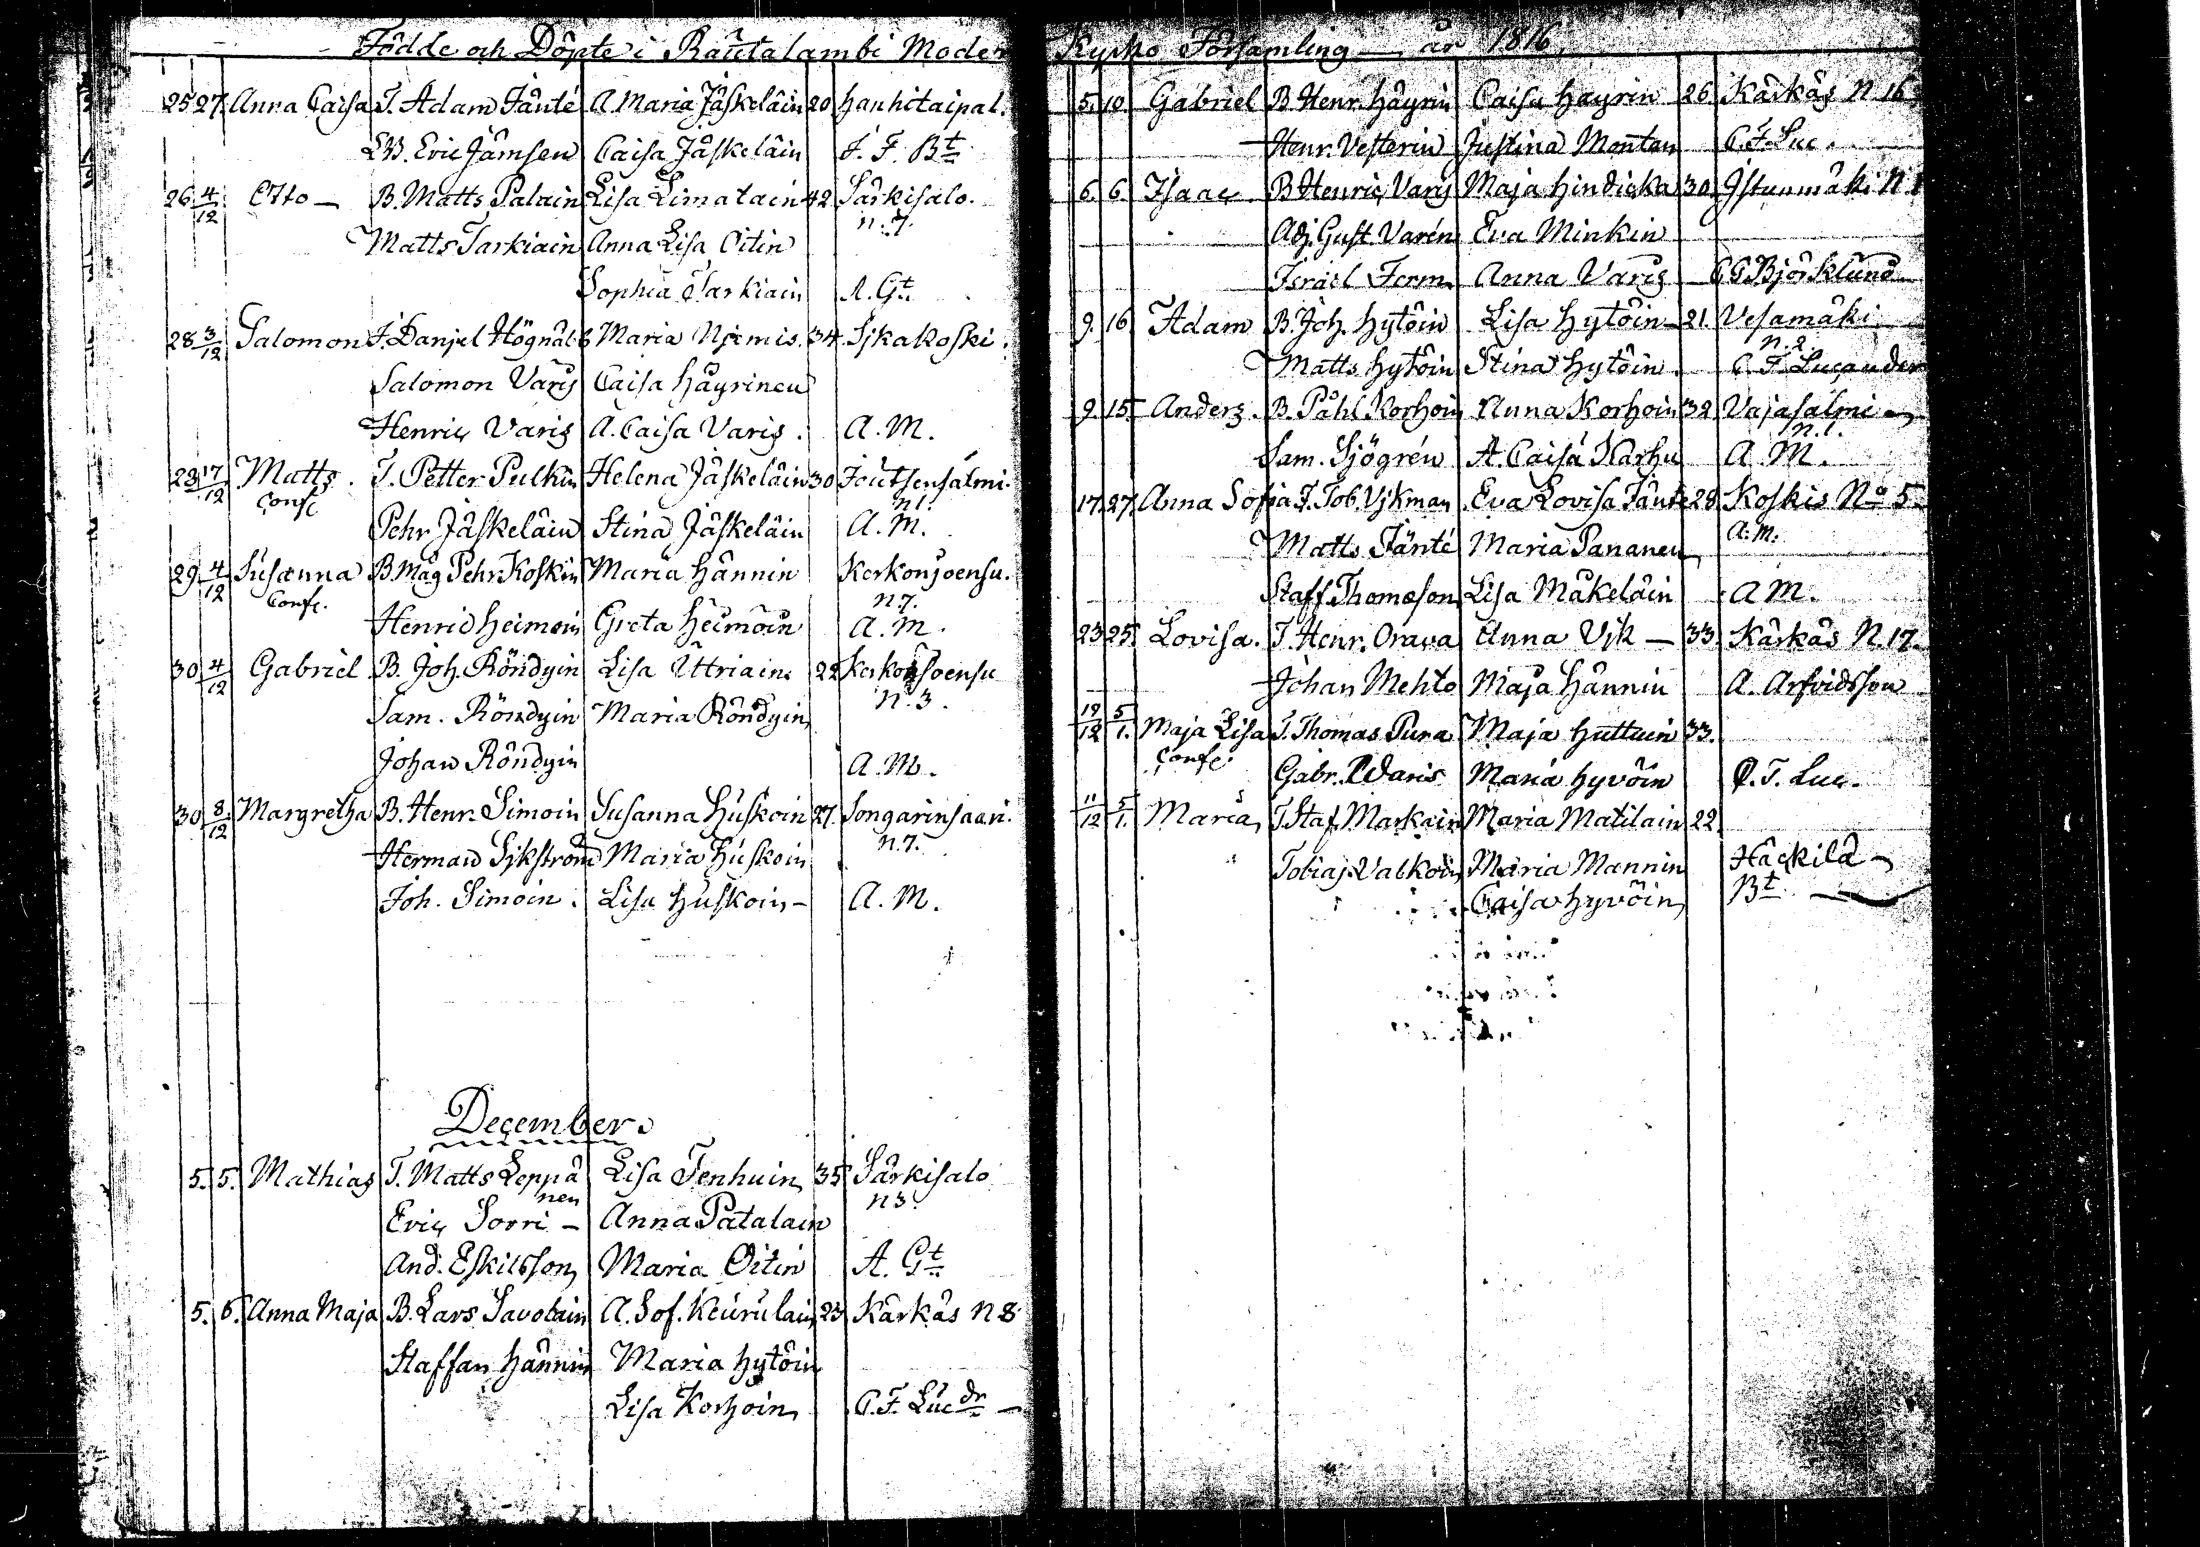 Födde och Döpte i Rautalambi Moder Kyrko Församling — år 1816.
25 27. Anna Caisa T. Adam Jänté A. Maria Jäskeläin 20 Hanhitaipal.
LB. Eric Jämsen Caisa Jäskeläin J. F. Bt
26 4/12 Otto — B. Matts Palain Lisa Limatain 42 Särkisalo.
n. 7.
Matts Tarkiain Anna Lisa Oitin
Sophia Tarkiain A. Gt.
28 3/12 Salomon J. Danjel Högnäl C. Maria Njemis. 34. Sjkakoski.
Salomon Varis Caisa Häyrinen
Henric Varis A. Caisa Varis. A. M.
29 17/12 Matts. T. Petter Pulkin Helena Jäskeläin 30 Joutsensalmi.
Conf. n1.
Pehr Jäskeläin Stina Jäskeläin A. M.
29 4/12 Susanna B. Måg Pehr Koskin Maria Hännin Kerkonjoensu.
Conf. n.7.
Henric Heimoin Greta Heimoin A. M.
30 4/12 Gabriel B. Joh. Röndyin Lisa Uttriain. 22 Kerkonjoensu
n. 3.
Sam. Röndyin Maria Röndyin
Johan Röndyin A. M.
30 8/12 Margretha B. Henr. Simoin Susanna Huskoin 27. Songarinsaari.
n. 7.
Herman Sjkström Maria Huskoin
Joh. Simoin. Lisa Huskoin — A. M.
December.
5. 5. Mathias T. Matts Leppä Lisa Tenhuin 35 Särkisalo
nen n 3.
Eric Sorri — Anna Patalain
And. Eskilsson Maria Oitin A. Gt
5. 6. Anna Maja B. Lars Savolain A. Sof. Keurulain 23 Kärkäs N 8
Staffan Hännin Maria Hytöin
Lisa Korhoin C. F. Lucdr —
5. 10. Gabriel B. Henr. Häyrin Caisa Hayrin 26 Kärkäs N. 16
Henr. Vesterin Justina Montan C. F. Luc.
6. 6. Isaac B. Henric Varis Maja Hindicka 30 Istunmäki N. 1
Adj. Gust. Varén Eva Minkin
Israel Ferm Anna Varis C. G. Björklund
9. 16 Adam B. Joh. Hytöin Lisa Hytöin — 21. Vesamäki
n. 2.
Matts Hytöin Stina Hytöin. C. F. Lucander
9. 15. Anders. B. Påhl Korhoin Anna Korhoin 32 Vajasalmi —
n. 1.
Sam. Sjögrén A. Caisa Karhu A. M.
17. 27. Anna Sofia J. Tob. Vjkman Eva Lovisa Jänté 28 Koskis No 5.
Matts Jänté Maria Pananen A. M.
Staff. Thomeson Lisa Mäkeläin A M.
23 25. Lovisa. T. Henr. Orava Anna Vik — 33 Kärkäs N. 17.
Johan Mehto Maja Hännin A. Arfvidsson
19/12 5/1. Maja Lisa T. Thomas Pura Maja Huttuin 33.
Conf.
Gabr. Varis Maria Hyvöin C. F. Luc.
11/12 5/1. Maria T. Staf. Markain Maria Matilain 22
Tobias Valkoin Maria Mannin Häckilä —
Caisa Hyvöin Bt.